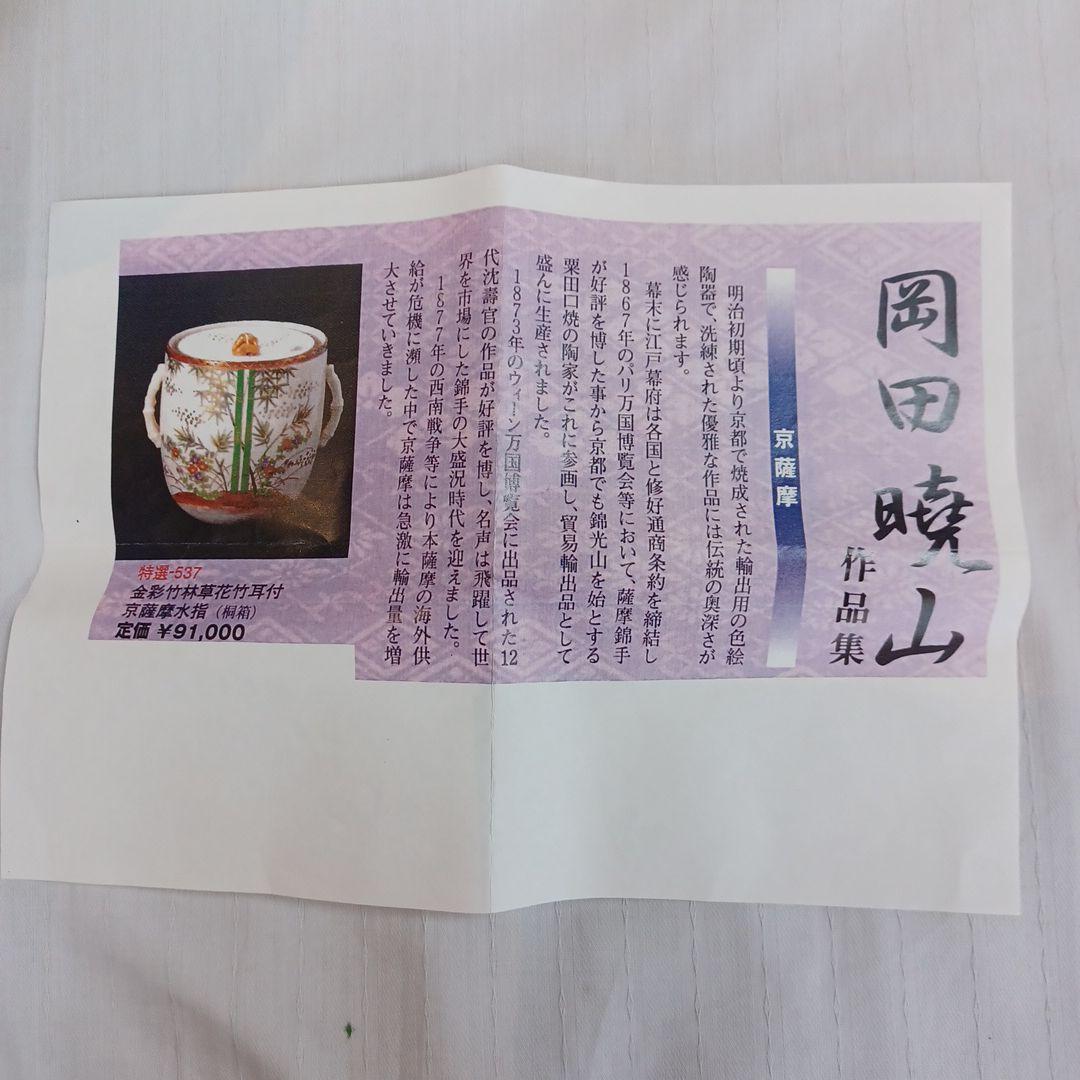 岡田曉山
作品集
京薩摩
明治初期頃より京都で焼成された輸出用の色絵
陶器で、洗練された優雅な作品には伝統の奥深さが
感じられます。
幕末に江戸幕府は各国と修好通商条約を締結し
1867年のパリ万国博覧会等において、薩摩錦手
が好評を博した事から京都でも錦光山を始とする
粟田口焼の陶家がこれに参画し、貿易輸出品として
盛んに生産されました。
1873年のウィーン万国博覧会に出品された12
代沈壽官の作品が好評を博し、名声は飛躍して世
界を市場にした錦手の大盛況時代を迎えました。
1877年の西南戦争等により本薩摩の海外供
給が危機に瀕した中で京薩摩は急激に輸出量を増
大させていきました。
特選-537
金彩竹林草花竹耳付
京薩摩水指（桐箱）
定価 ¥91,000